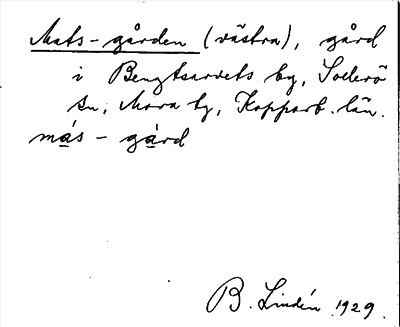 Mats-gården (västra), gård
i Bengtsarvets by, Sollerö
sn, Mora tg, Kopparb. län.
más-gàrd
B. Lindén 1929.